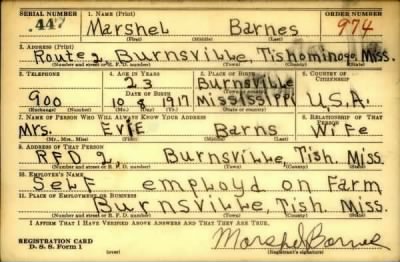 SERIAL NUMBER 1. NAME (Print) ORDER NUMBER
447 Marshel Barnes 974
(First) (Middle) (Last)
2. ADDRESS (Print)
Route 2 Burnsville, Tishominogo Miss.
(Number and street or R. F. D. number) (Town) (County) (State)
3. TELEPHONE 4. AGE IN YEARS 5. PLACE OF BIRTH 6. COUNTRY OF CITIZENSHIP
23 Burnsville
DATE OF BIRTH (Town or county)
900 10 8 1917 Mississippi U.S.A.
(Exchange) (Number) (Mo.) (Day) (Yr.) (State or country)
7. NAME OF PERSON WHO WILL ALWAYS KNOW YOUR ADDRESS 8. RELATIONSHIP OF THAT PERSON
Mrs. Evie Barns Wife
(Mr., Mrs., Miss) (First) (Middle) (Last)
9. ADDRESS OF THAT PERSON
RFD 2, Burnsville, Tish. Miss.
(Number and street or R. F. D. number) (Town) (County) (State)
10. EMPLOYER'S NAME
Self employd on Farm
11. PLACE OF EMPLOYMENT OR BUSINESS
Burnsville, Tish. Miss.
(Number and street or R. F. D. number) (Town) (County) (State)
I AFFIRM THAT I HAVE VERIFIED ABOVE ANSWERS AND THAT THEY ARE TRUE.
REGISTRATION CARD
D. S. S. Form 1 (over) Marshel Barnes
(Registrant's signature)